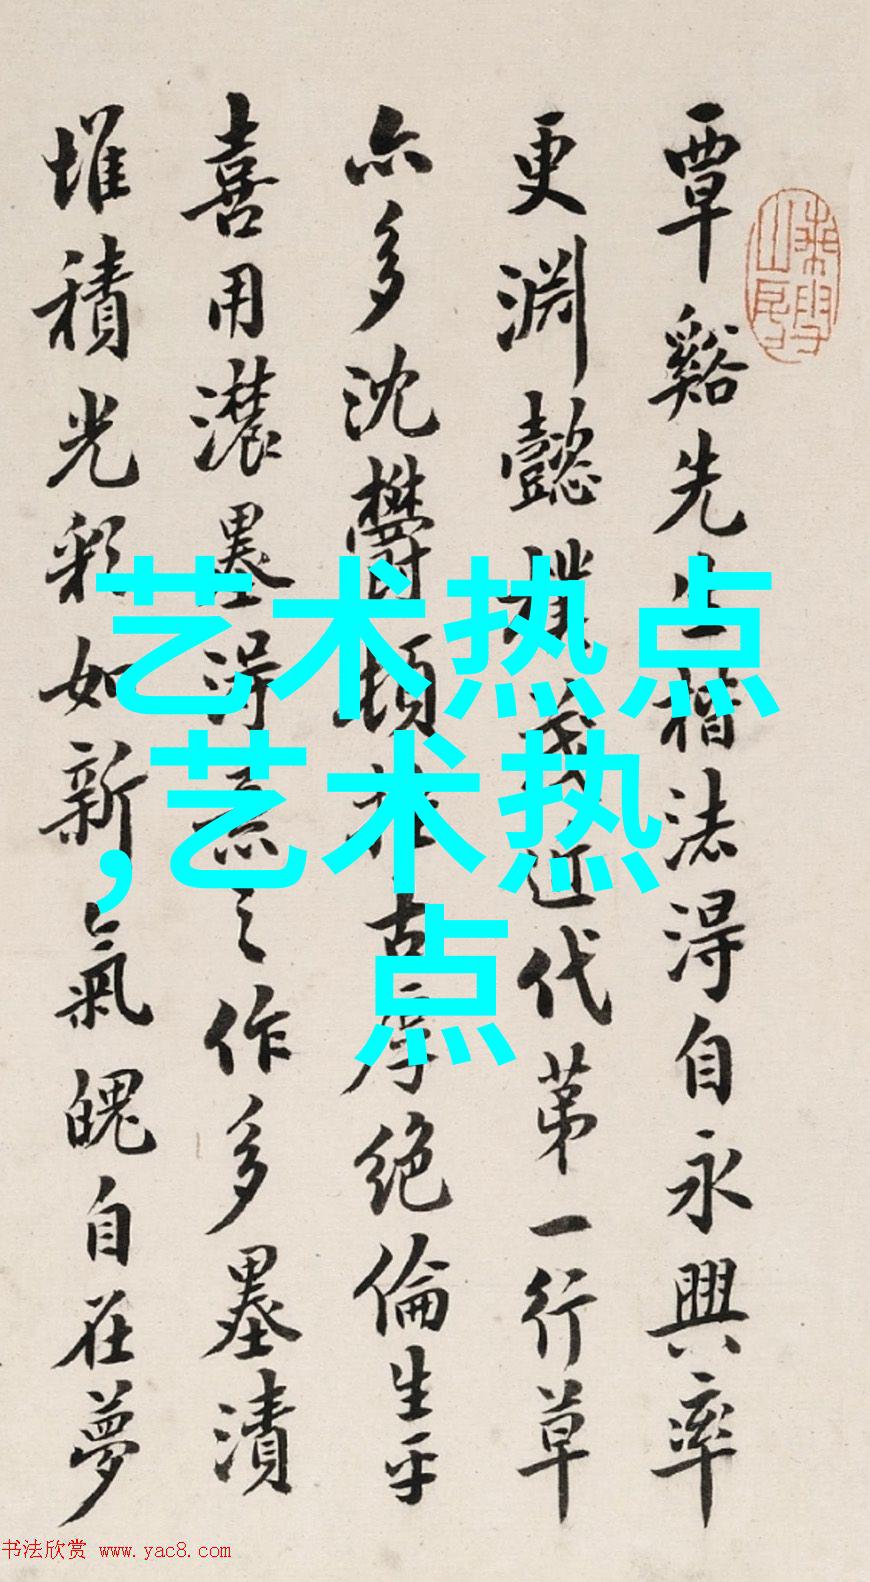 覃谿先生楷法得自永興率
更淵懿樸茂近代第一行草
亦多沈欝頓挫古厚絕倫生平
喜用濃墨得意之作多墨漬
堆積光彩如新氣魄自在夢
艺术热点
,艺术热
点
书法欣赏 www.yac8.com